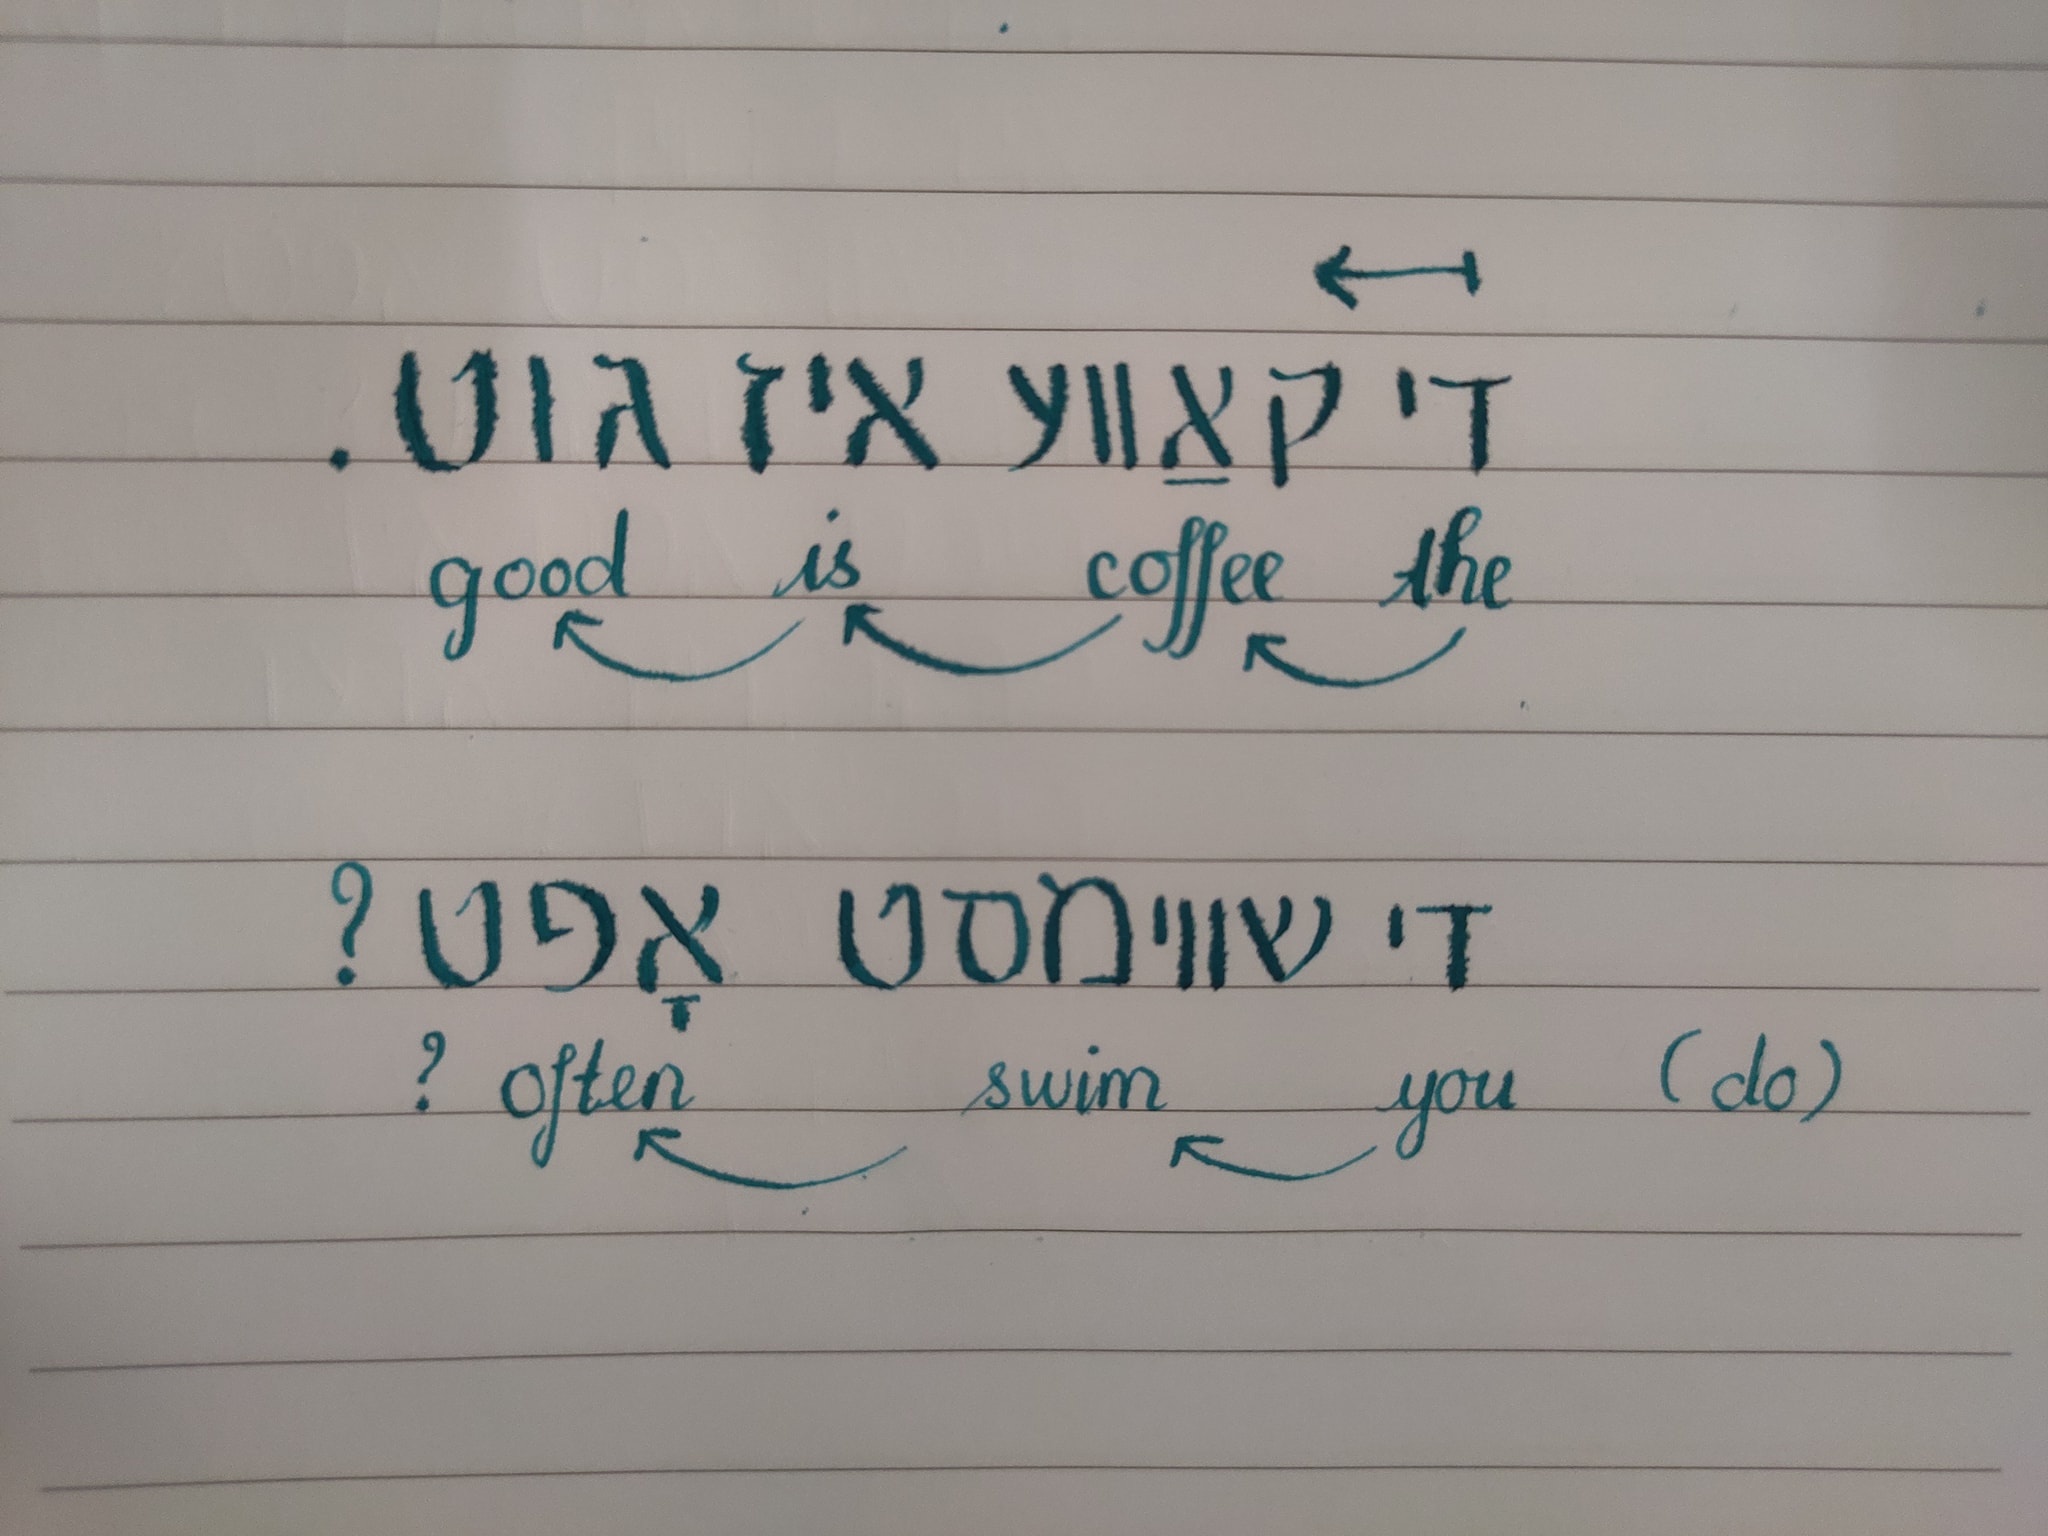 די קאַווע איז גוט.
good is coffee the
די שווימסט אָפט?
? often swim you (do)